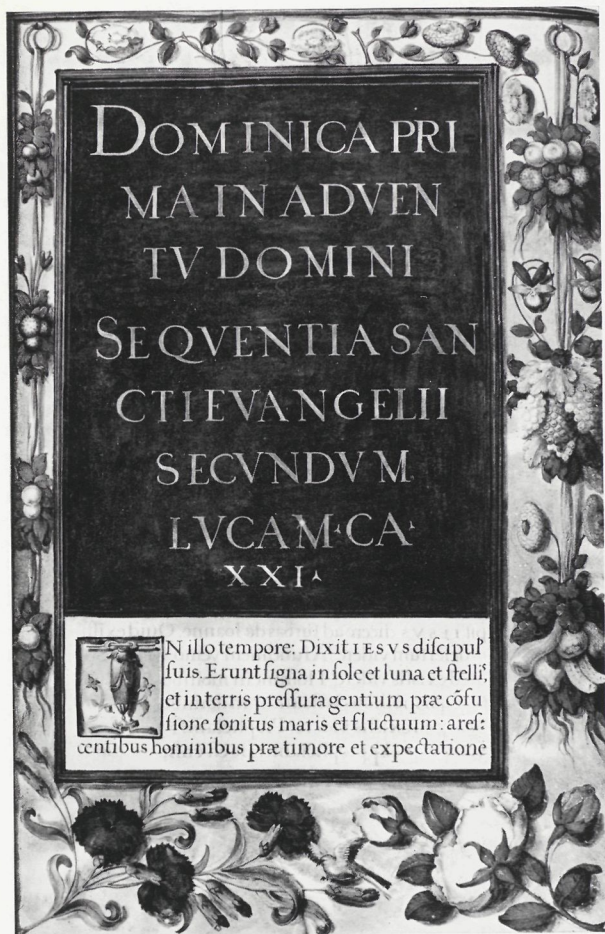 DOMINICA PRI
MA IN ADVEN
TV DOMINI
SEQVENTIA SAN
CTI EVANGELII
SECVNDVM
LVCAM·CA·
XXI·
IN illo tempore: Dixit IESVS diſcipul᷒
ſuis. Erunt ſigna in ſole et luna et ſtelli᷒,
et in terris preſſura gentium præ cõfu
ſione ſonitus maris et fluctuum: areſ:
centibus hominibus præ timore et expectatione